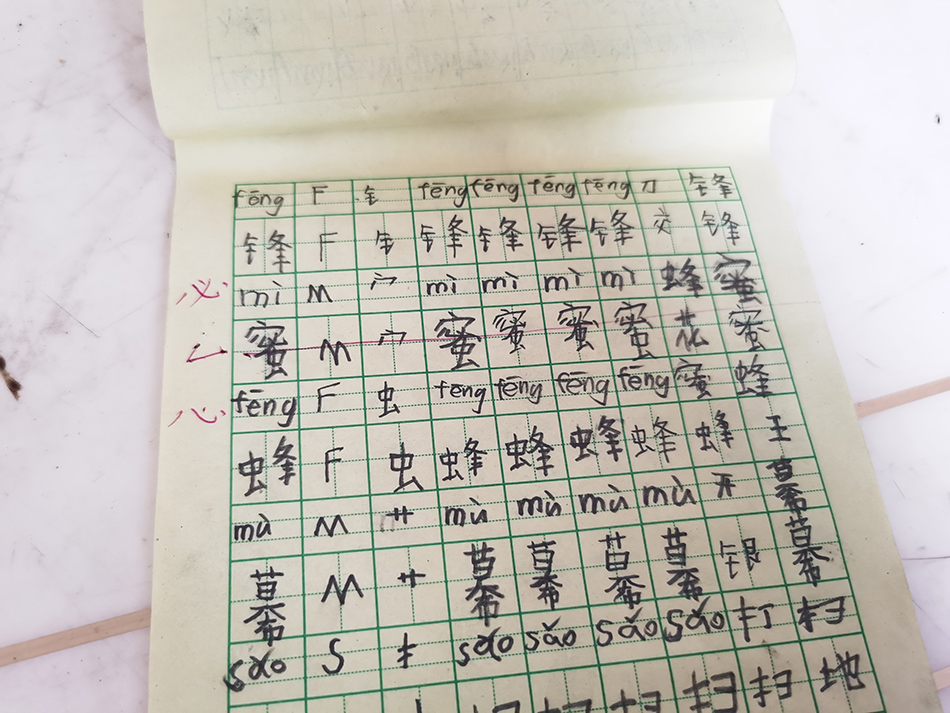 fēng F 钅 fēng fēng fēng fēng 刀 锋
锋 F 钅 锋 锋 锋 锋 交 锋
必 mì M 宀 mì mì mì mì 蜂 蜜
蜜 M 宀 蜜 蜜 蜜 蜜 花 蜜
心 fēng F 虫 fēng fēng fēng fēng 蜜 蜂
蜂 F 虫 蜂 蜂 蜂 蜂 蜂 王
mù M 艹 mù mù mù mù 开 幕
幕 M 艹 幕 幕 幕 幕 银 幕
sǎo S 扌 sǎo sǎo sǎo sǎo 打 扫
扫 扫 地